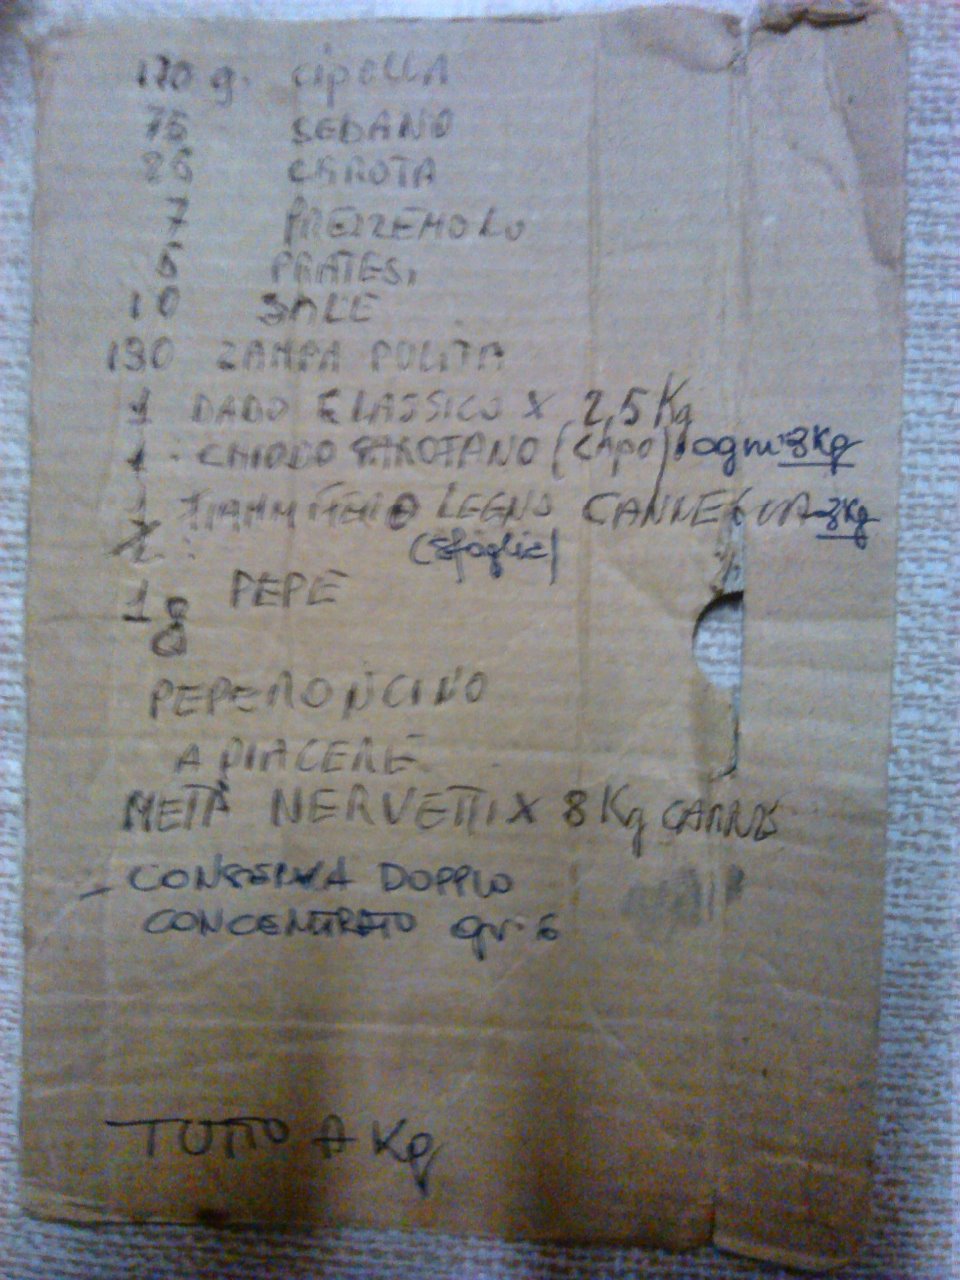 170 g. CIPOLLA
75 SEDANO
25 CAROTA
7 PREZZEMOLO
5 PRATESI
10 SALE
130 ZAMPA POLITA
1 DADO CLASSICO X 2,5 Kg
1 CHIODO GAROFANO (CAPO) ogni 3Kg
1 LEGNO CANNELLA 3Kg
(sfoglie)
1 g PEPE
PEPERONCINO
A PIACERE
METÀ NERVETTI X 8 Kg CARNE
- CONSERVA DOPPIO
CONCENTRATO gr. 6
TUTTO A Kg